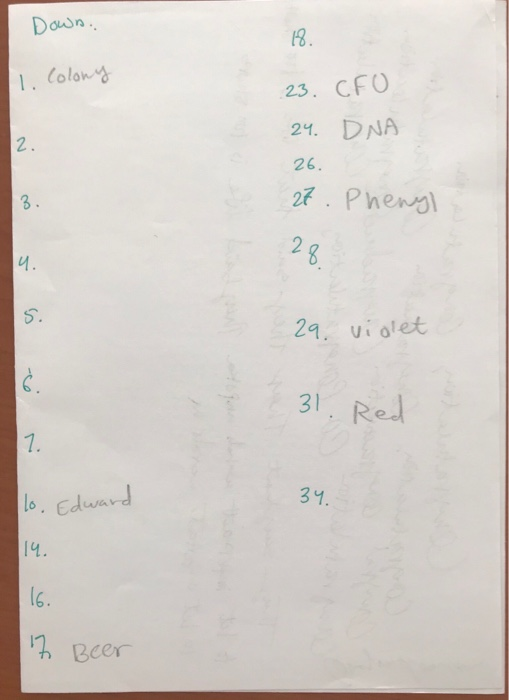 Down:
1. Colony
2.
3.
4.
5.
6.
7.
10. Edward
14.
16.
17. Beer
18.
23. CFU
24. DNA
26.
27. Phenyl
28.
29. violet
31. Red
34.